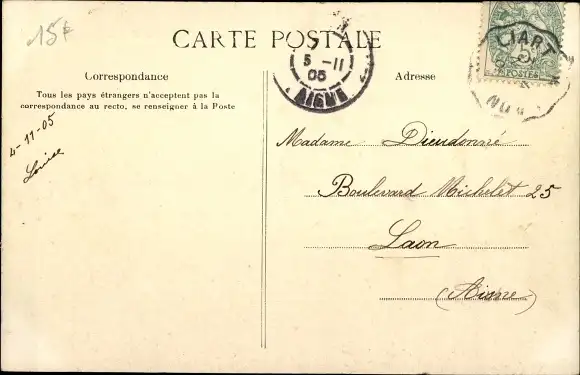 15€
CARTE POSTALE
5 -11
05
AISNE
LIART
5
POSTES
Correspondance
Tous les pays étrangers n'acceptent pas la
correspondance au recto, se renseigner à la Poste
4-11-05
Louise
Adresse
Madame Dieudonné
Boulevard Michelet 25
Laon
(Aisne)